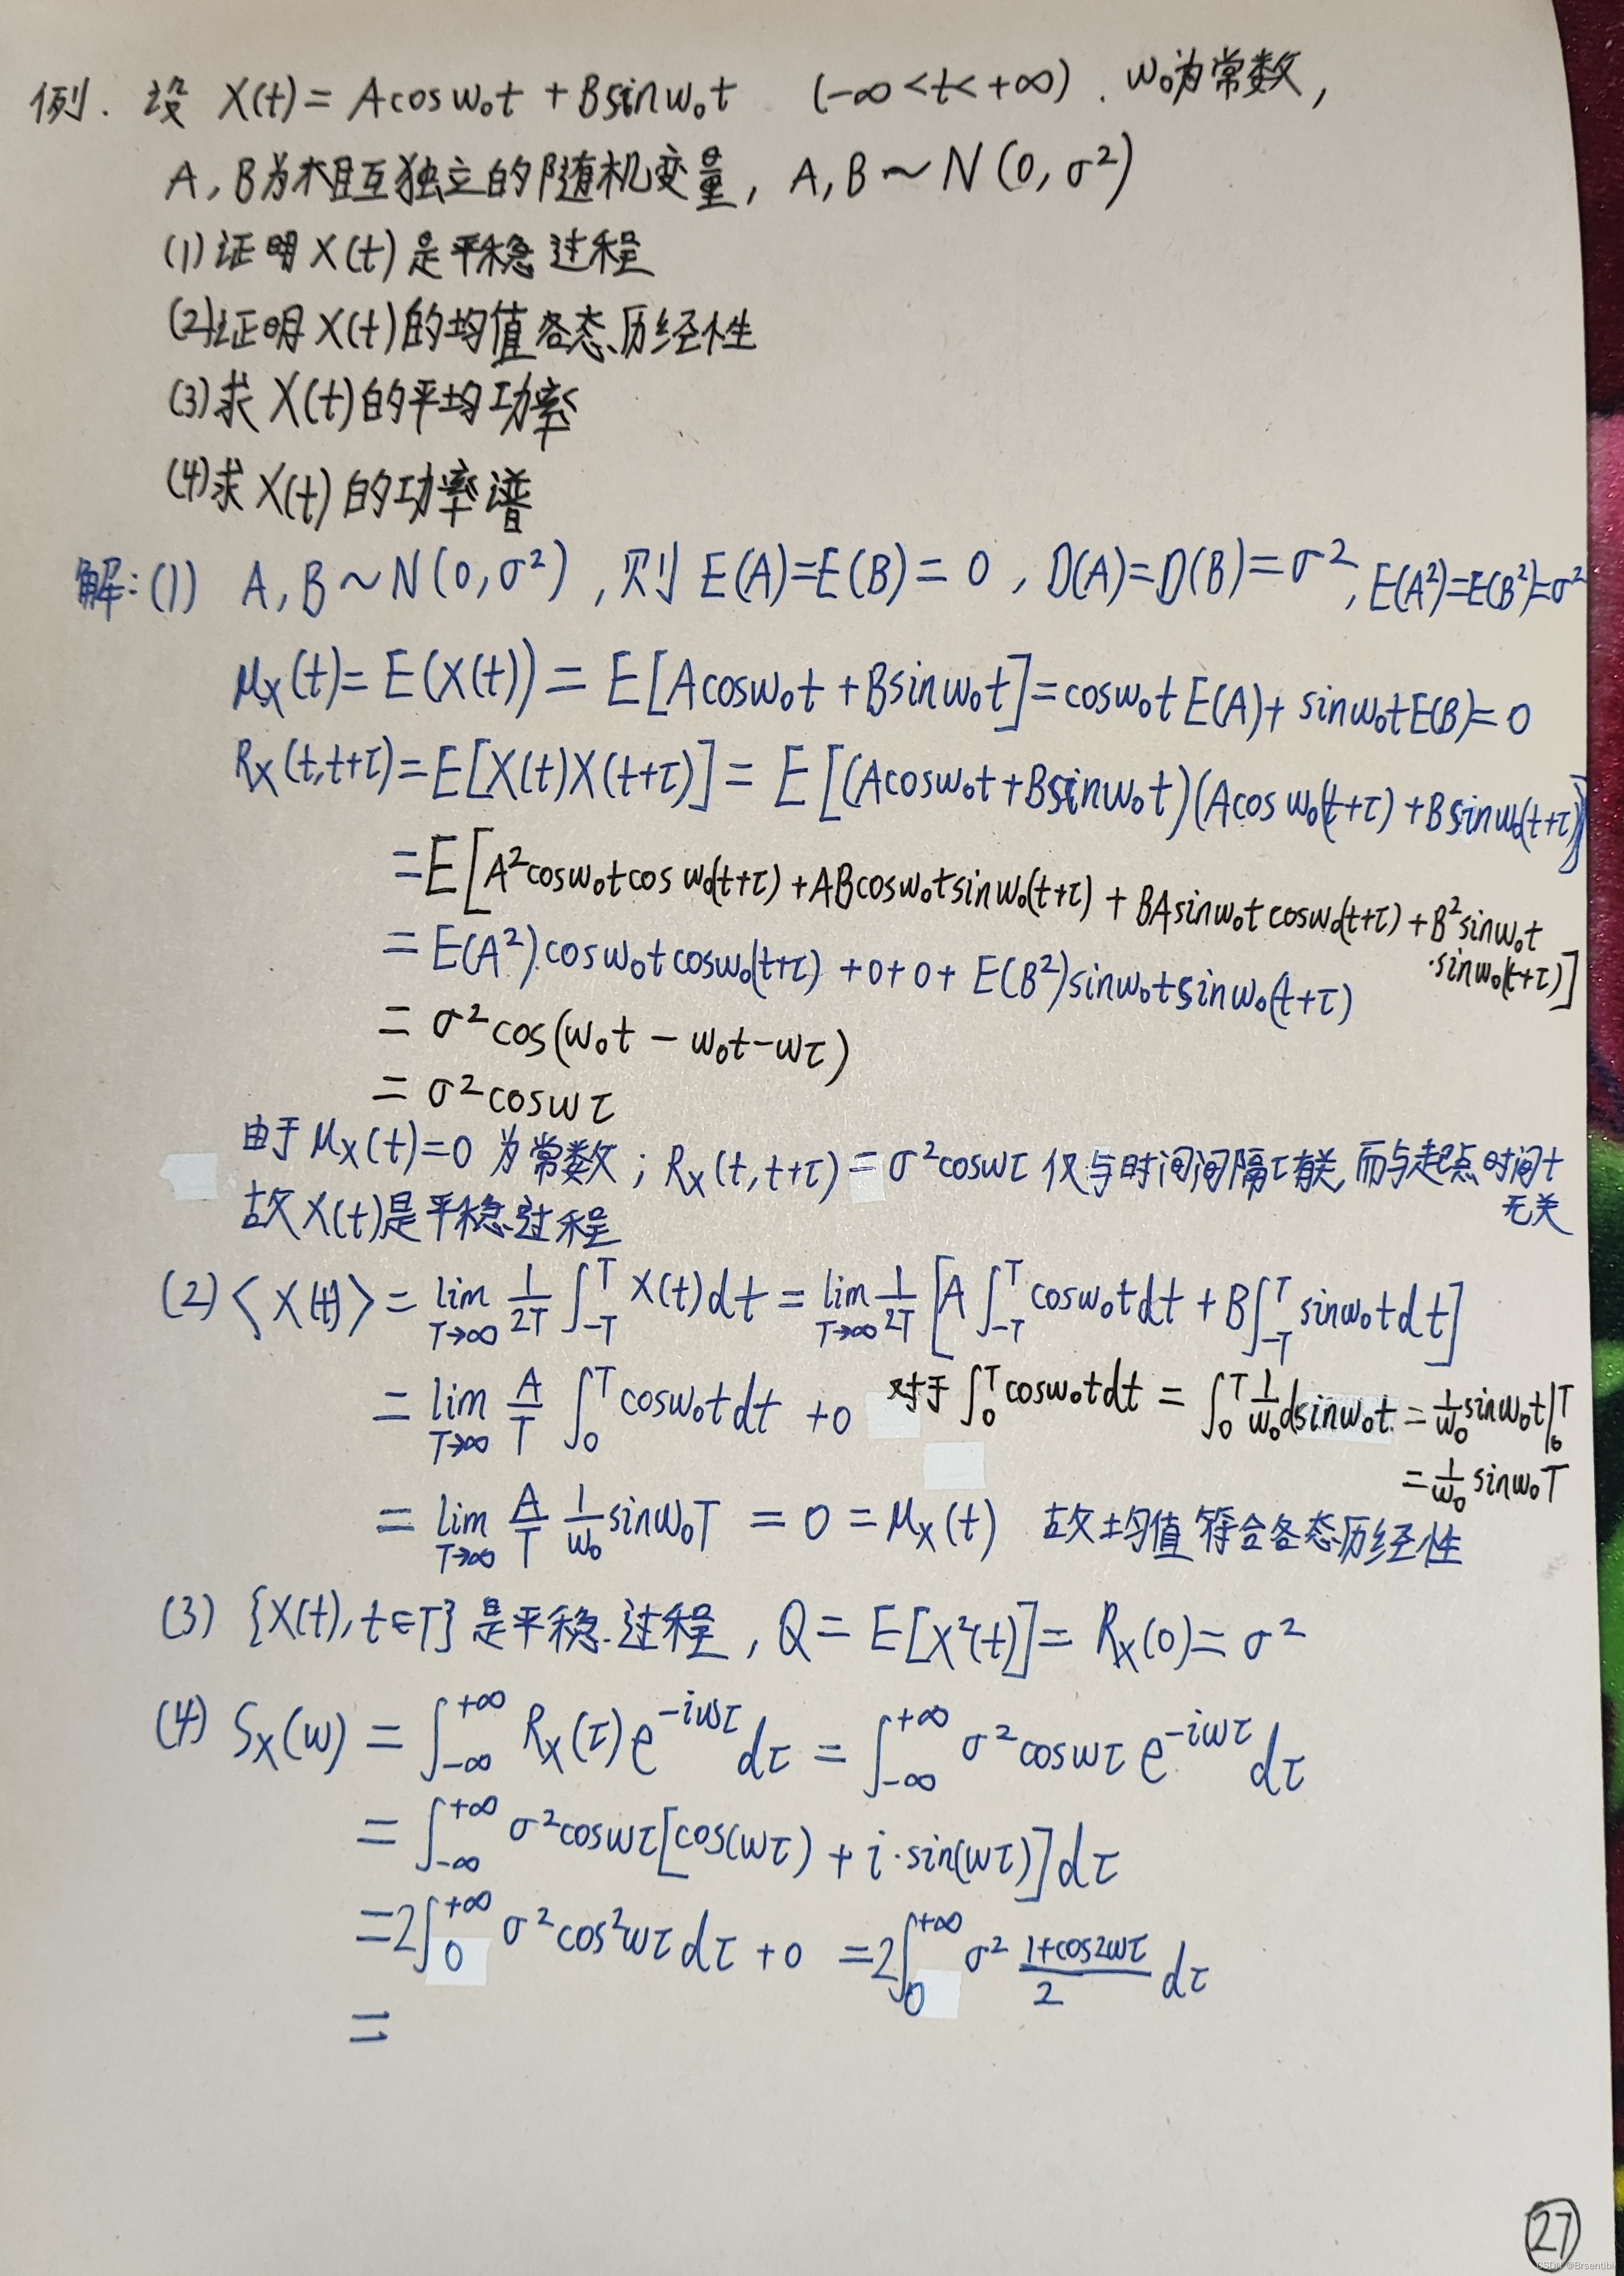 例. 设 X(t) = Acosw₀t + Bsinw₀t (-∞<t<+∞). w₀为常数,
A, B为相互独立的随机变量, A, B ~ N(0, σ²)
(1) 证明 X(t) 是平稳过程
(2) 证明 X(t) 的均值各态历经性
(3) 求 X(t) 的平均功率
(4) 求 X(t) 的功率谱
解: (1) A, B ~ N(0, σ²), 则 E(A)=E(B)=0, D(A)=D(B)=σ², E(A²)=E(B²)=σ²
μx(t)= E(X(t)) = E[Acosw₀t + Bsinw₀t]=cosw₀t E(A)+ sinw₀tE(B)=0
Rx(t,t+τ)=E[X(t)X(t+τ)]= E[(Acosw₀t+Bsinw₀t)(Acos w₀(t+τ) +Bsinw₀(t+τ))]
=E[A²cosw₀tcos w₀(t+τ) +ABcosw₀tsinw₀(t+τ) + BAsinw₀t cosw₀(t+τ) +B²sinw₀t
·sinw₀(t+τ)]
= E(A²)·cosw₀tcosw₀(t+τ) +0+0+ E(B²)sinw₀tsinw₀(t+τ)
= σ²cos(w₀t - w₀t-wτ)
= σ²coswτ
由于 μx(t)=0 为常数; Rx(t, t+τ) = σ²coswτ 仅与时间间隔τ有关, 而与起点时间t
无关
故 X(t)是平稳过程
(2) 〈X(t)〉= lim T→∞ 1/2T ∫_{-T}^{T} X(t)dt = lim T→∞ 1/2T [A∫_{-T}^{T} cosw₀tdt + B∫_{-T}^{T} sinw₀tdt]
= lim T→∞ A/T ∫_0^T cosw₀tdt +0 对于 ∫_0^T cosw₀tdt = ∫_0^T 1/w₀ dsinw₀t = 1/w₀ sinw₀t|_0^T
= 1/w₀ sinw₀T
= lim T→∞ A/T 1/w₀ sinw₀T = 0 = μx(t) 故均值符合各态历经性
(3) {X(t), t∈T} 是平稳过程, Q = E[X²(t)]= Rx(0)= σ²
(4) Sx(w) = ∫_{-∞}^{+∞} Rx(τ)e^{-iwτ}dτ = ∫_{-∞}^{+∞} σ²coswτ e^{-iwτ}dτ
= ∫_{-∞}^{+∞} σ²coswτ[cos(wτ) + i·sin(wτ)]dτ
=2∫_0^{+∞} σ²cos²wτdτ +0 =2∫_0^{+∞} σ² (1+cos2wτ)/2 dτ
=
27
CSDN @Brsentibi